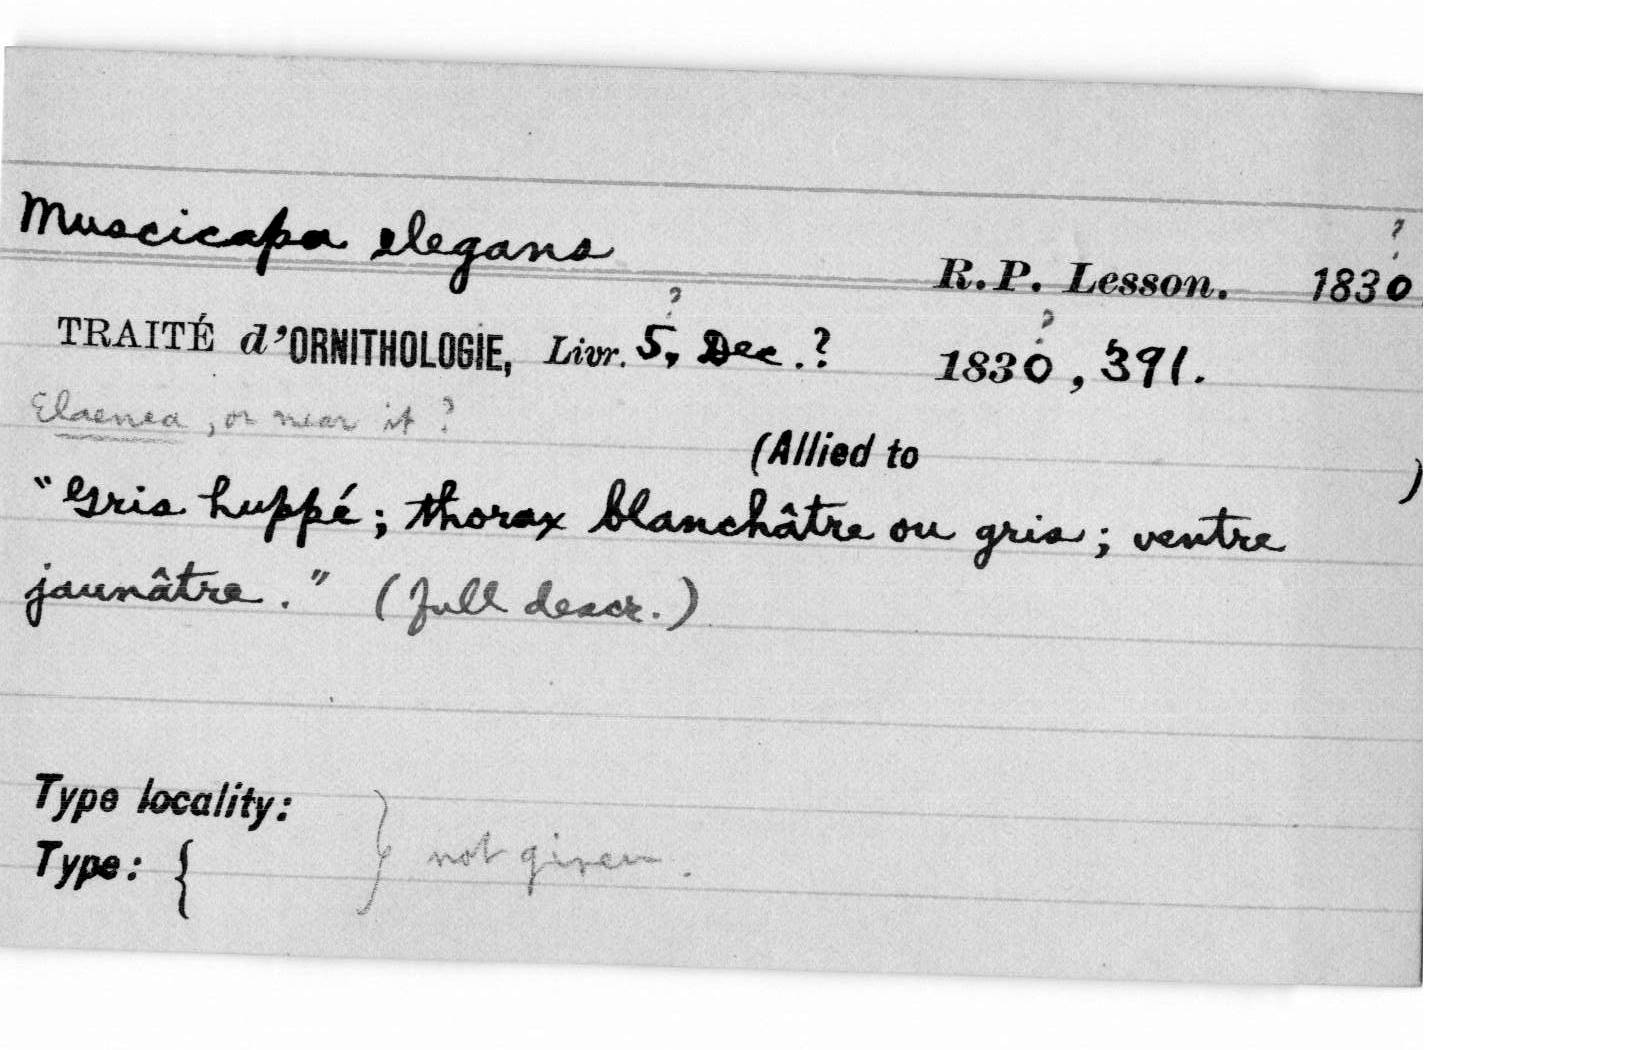 Muscicapa elegans
R. P. Lesson. 1830?
TRAITÉ d'ORNITHOLOGIE, Livr. 5?, Dec.? 1830?, 391.
Elaenea, or near it?
(Allied to )
"Gris huppé; thorax blanchâtre ou gris; ventre
jaunâtre." (full descr.)
Type locality:
Type: { } not given.